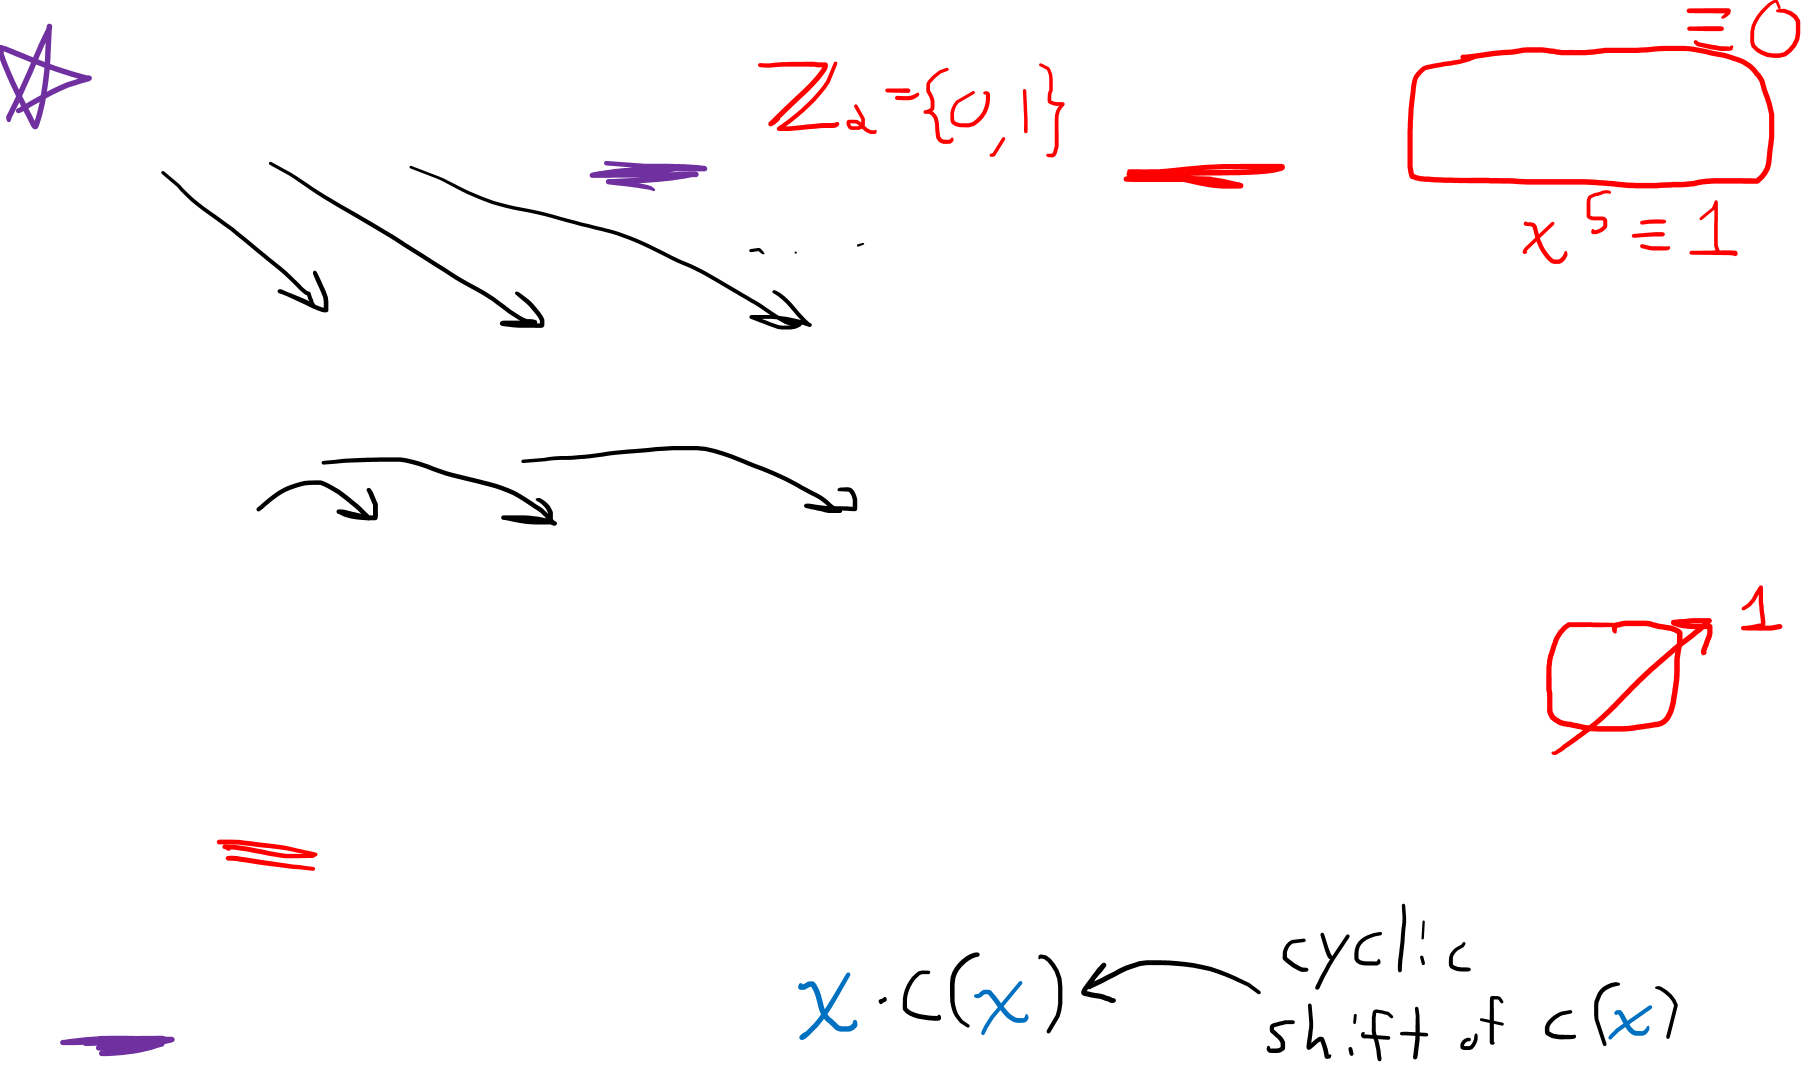 ≡ 0
ℤ₂ = {0,1}
x⁵ ≡ 1
1
x · c(x)
cyclic
shift of c(x)